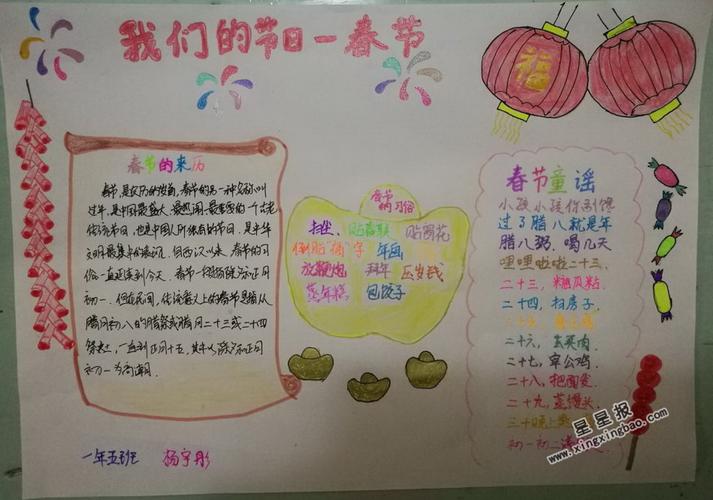 我们的节日—春节
福
春节的来历
春节,是农历的岁首,春节的另一种名称叫
过年,是中国最盛大、最热闹、最重要的一个古老
传统节日,也是中国人所独有的节日,是中华
文明最集中的表现。自西汉以来,春节的习
俗一直延续到今天。春节一般指除夕和正月
初一。但在民间,传统意义上的春节是指从
腊月初八的腊祭或腊月二十三或二十四
的祭灶,一直到正月十五,其中以除夕和正月
初一为高潮。
春节
的习俗
扫尘、贴春联 贴窗花
倒贴福字 年画
放鞭炮 拜年 压岁钱
蒸年糕 包饺子
春节童谣
小孩小孩你别馋
过了腊八就是年
腊八粥,喝几天
哩哩啦啦二十三,
二十三,糖瓜粘.
二十四,扫房子.
二十六,去买肉
二十七,宰公鸡.
二十八,把面发.
二十九,蒸馒头.
三十晚上
初一初二
一年五班 杨宇彤
星星报
www.xingxingbao.com